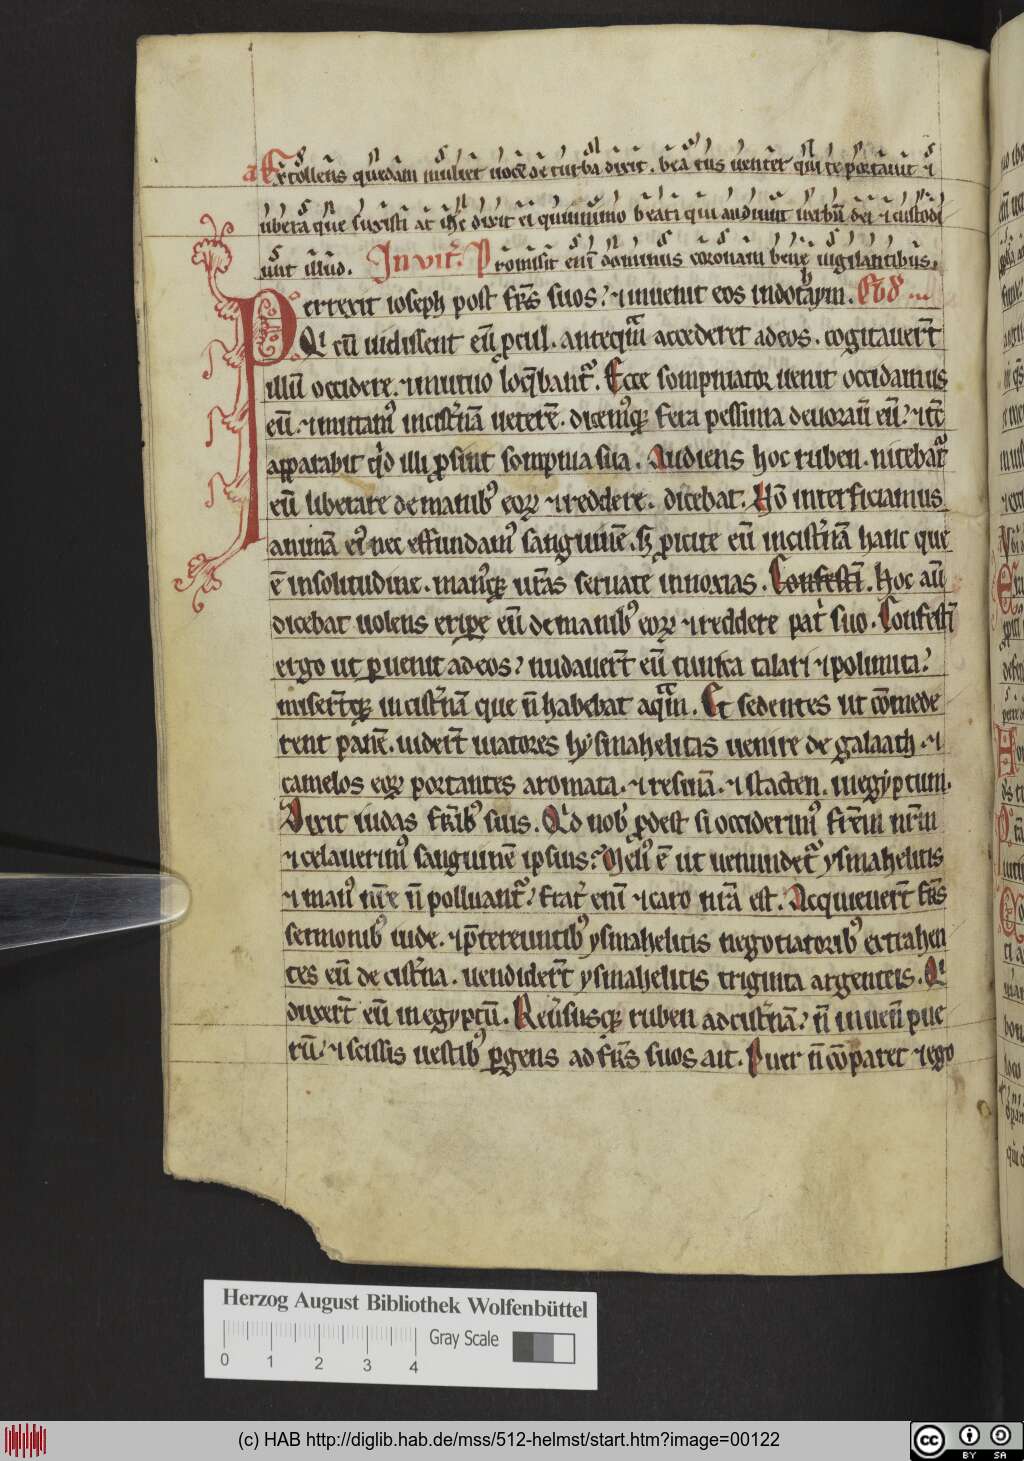 a Extollens quedam mulier uocē de turba dixit. beatus uenter qui te portauit ⁊
ubera que suxisti at ihc̄ dixit ei quinimmo beati qui audiunt uerbū dei ⁊ custodi
unt illud. In vit̄. Promisit eni dominus coronam bene uigilantibus.
Perrexit ioseph post fr̄s suos. ⁊ inuenit eos in dothaym.
Qi cū uidissent eū ꝓcul. anteqm accederet ad eos. cogitauer̄t
illū occidere. ⁊ mutuo loq̄bant᷑. Ecce sompniator uenit occidamus
eū. ⁊ mittam᷒ in cist̄nā ueterē. dicem᷒qꝫ fera pessima deuorauͥ eū. ⁊ tc̄
apparabit qͥd illi ꝓsint sompnia sua. Audiens hoc ruben. nitebat᷑
eū liberare de manib᷒ eoꝝ ⁊ reddere. dicebat. Nō interficiamus
animā ei᷒ nec effundam᷒ sanguinē. sꝫ ꝓicite eū in cist̄nā hanc que
ē in solitudine. man᷒qꝫ ur̄as seruate innoxias. Confestī. Hoc aū
dicebat uolens eripe eū de manib᷒ eoꝝ ⁊ reddere patͥ suo. Confestī
ergo ut ꝑuenit ad eos. nudauer̄t eū tunica talari ⁊ polimita.
miser̄tqꝫ in cist̄nā que n̄ habebat aqm. Et sedentes ut cōmede
rent panē. uider̄t uiatores hysmahelitas uenire de galaath. ⁊
camelos eoꝝ portantes aromata. ⁊ resinā. ⁊ stacten. in egyptum.
Dixit iudas fr̄ib᷒ suis. Qͥd nob̄ ꝓdest si occiderim᷒ fr̄em nr̄m
⁊ celauerim᷒ sanguinē ipsius. Meli᷒ ē ut uenundet᷑ ysmahelitis
⁊ man᷒ nr̄e n̄ polluant᷑. frat̄ eni ⁊ caro nr̄a est. Acquieuer̄t fr̄s
sermonib᷒ iude. ⁊ p̄tereuntib᷒ ysmahelitis negotiatorib᷒ extrahen
tes eū de cist̄na. uendider̄t ysmahelitis triginta argenteis. Qi
duxer̄t eū in egyptū. Reūsusqꝫ ruben ad cist̄nā. n̄ inuenͥ pue
rū. ⁊ scissis uestib᷒ ꝑgens ad fr̄s suos ait. Puer n̄ cōparet ⁊ ego
Herzog August Bibliothek Wolfenbüttel
Gray Scale
0 1 2 3 4
(c) HAB http://diglib.hab.de/mss/512-helmst/start.htm?image=00122
cc BY SA